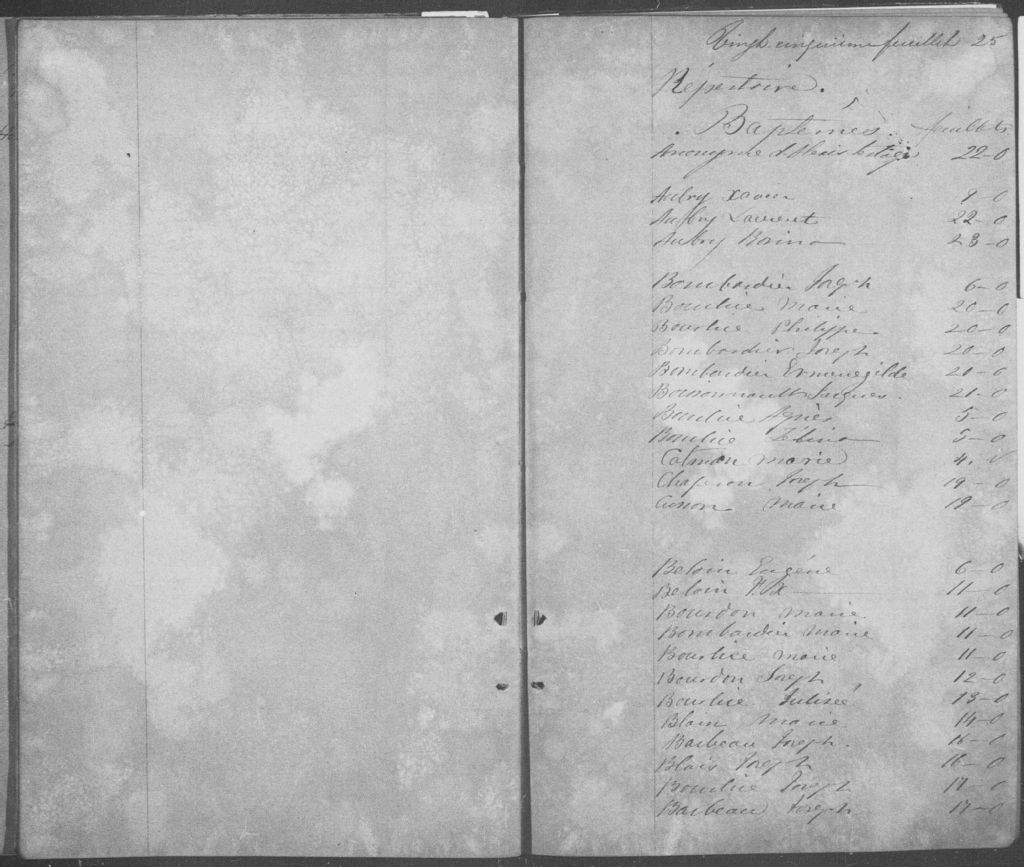 Vingt cinquième feuillet 25
Répertoire.
Baptêmes. feuillets
Anonyme 22-0
Aubry 9-0
Aubry Laurent 22-0
Aubry 23-0
Bombardier Joseph 6-0
Bourlie Marie 20-0
Bourlie Philippe 20-0
Bombardier Joseph 20-0
Bombardier Ermenegilde 20-0
Jacques. 21-0
Bourlie 5-0
Bourlie 5-0
Catman Marie 4.
Joseph 19-0
Cusson Marie 19-0
Beloin Eugène 6-0
Beloin 11-0
Bourdon Marie 11-0
Bombardier Marie 11-0
Bourlie Marie 11-0
Bourdon Joseph 12-0
Bourlie 13-0
Blain Marie 14-0
Barbeau Joseph. 16-0
Blais Joseph 16-0
Bourlie Joseph 17-0
Barbeau Joseph 17-0